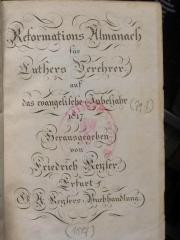 Reformations Almanach
für
Luthers Verehrer
auf
das evangelische Jubeljahr
1817
Herausgegeben
von
Friedrich Keyser
Erfurt
Buchhandlung
(1817)